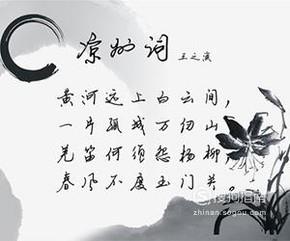 凉州词 王之涣
黄河远上白云间，
一片孤城万仞山
羌笛何须怨杨柳
春风不度玉门关。
搜狗指南
zhinan.sogou.com